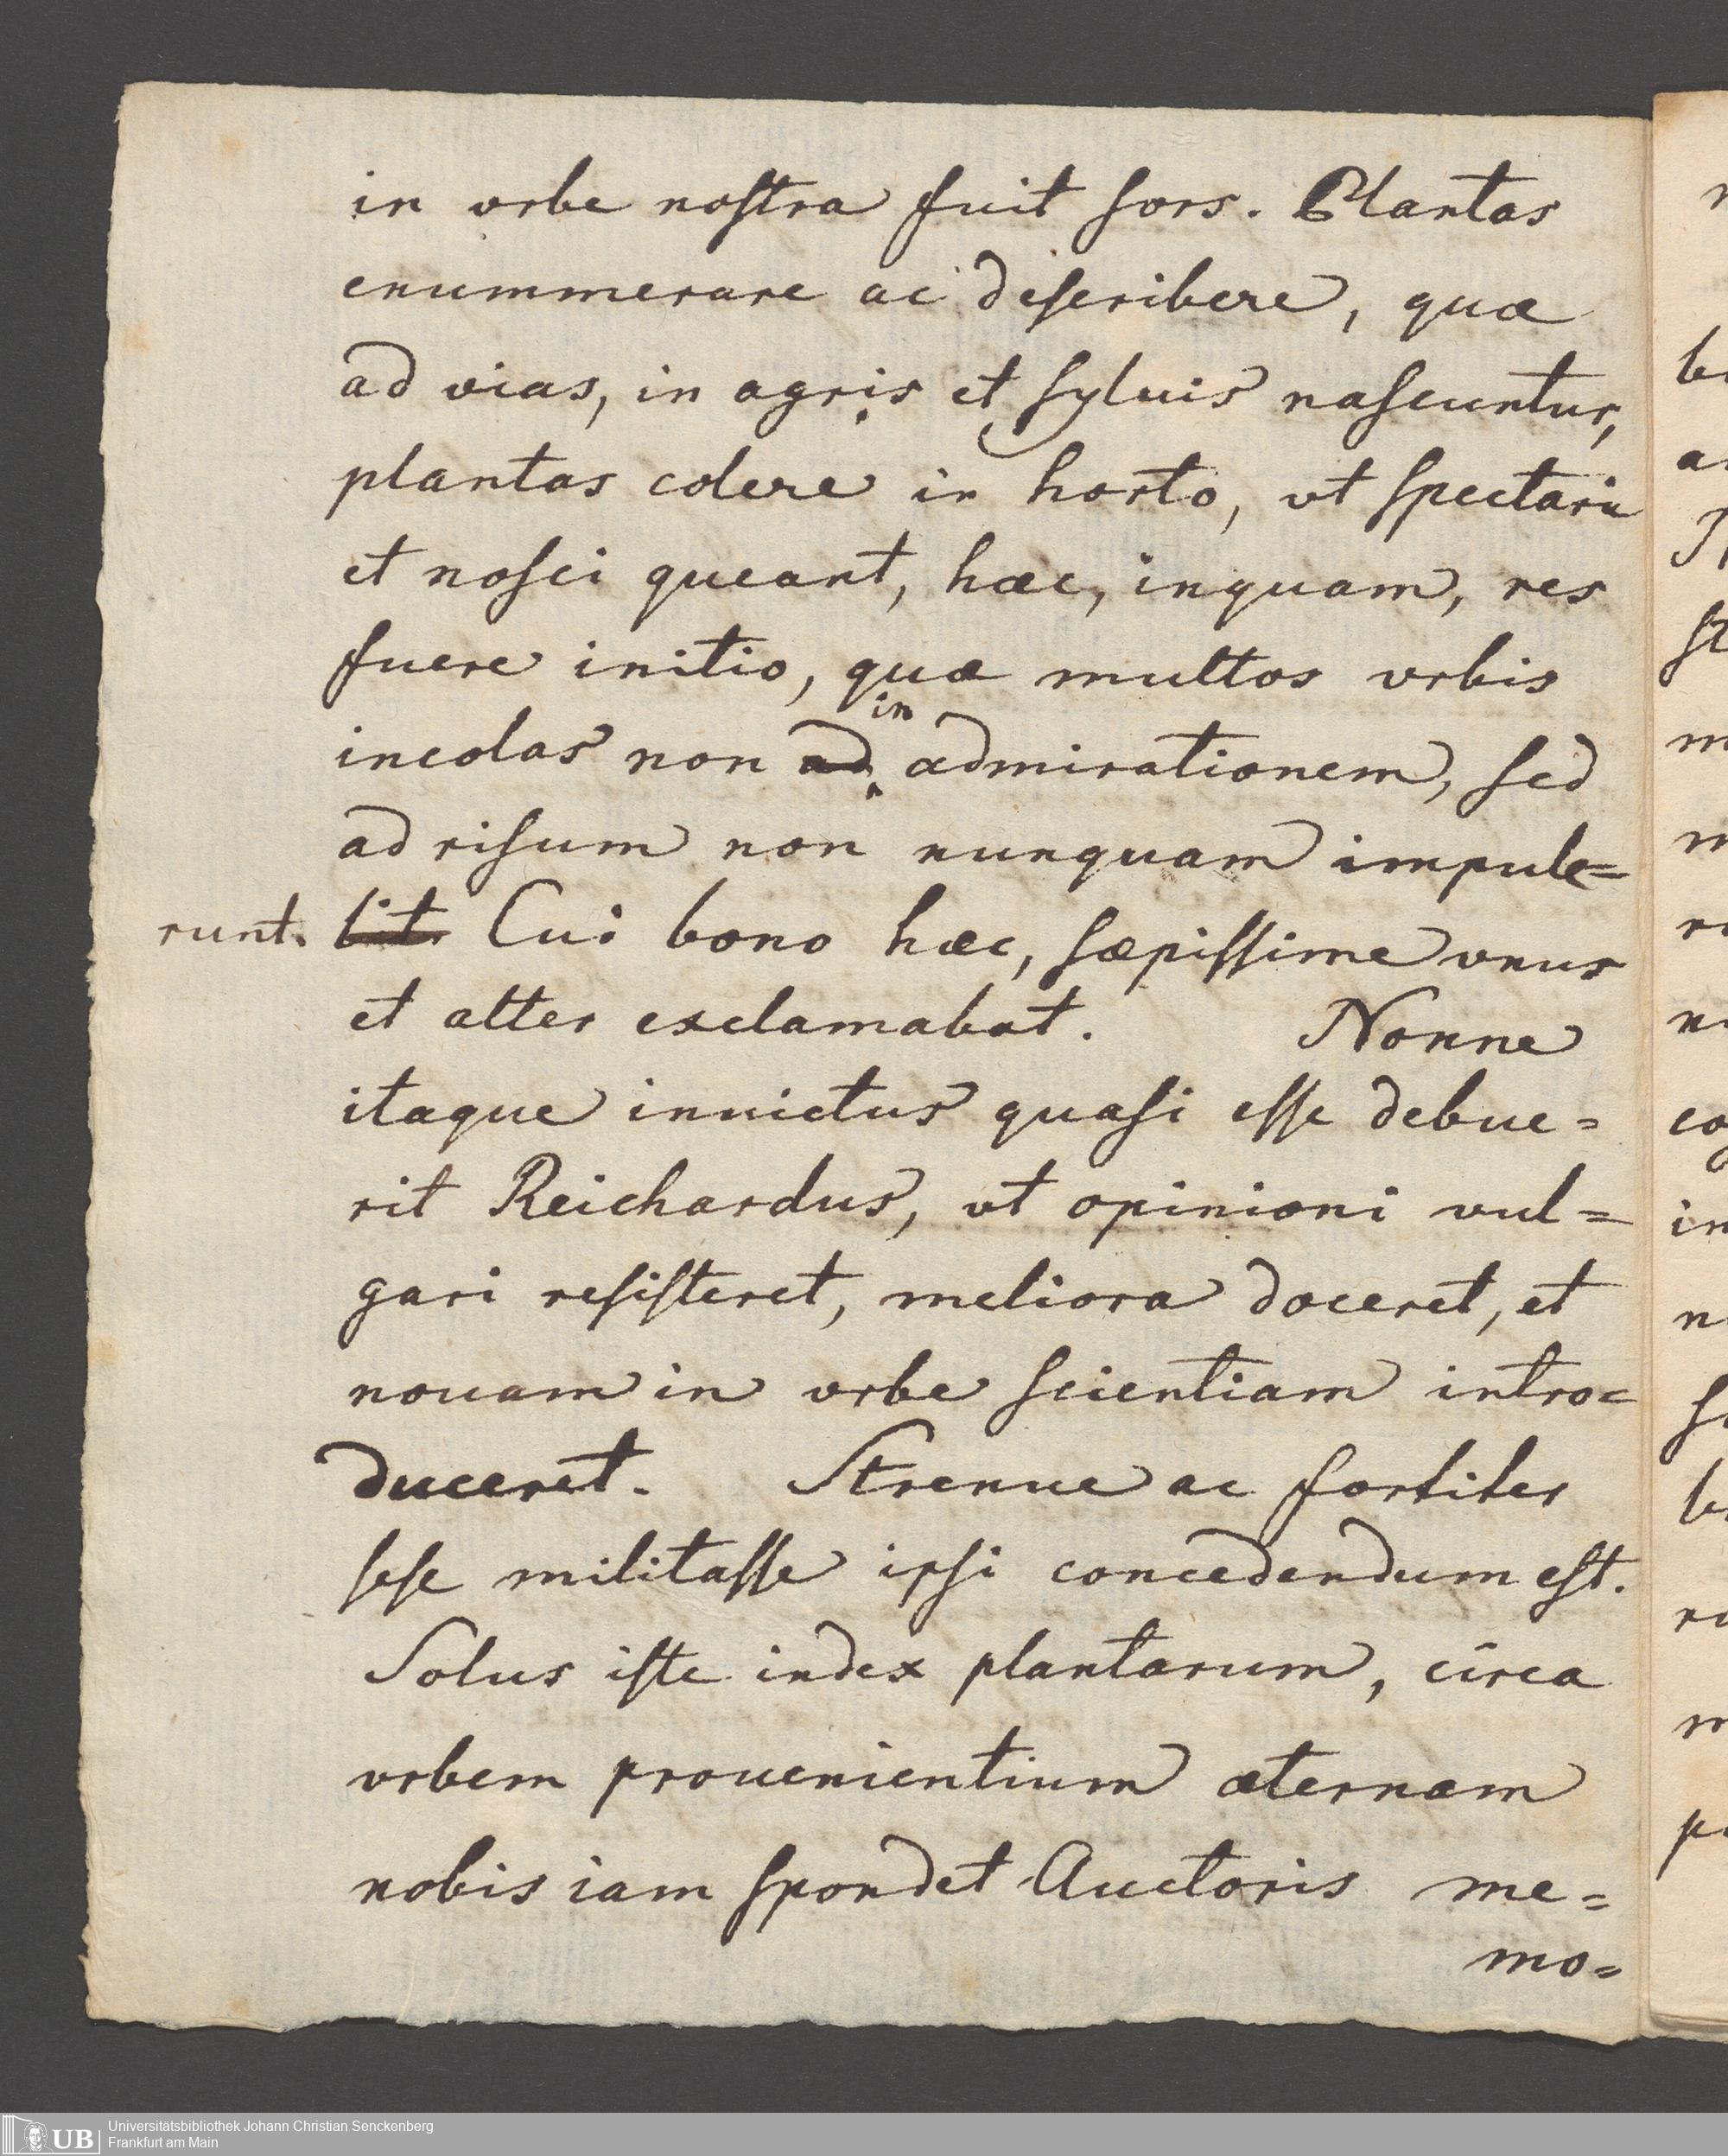 in vrbe noſtra fuit ſors. Plantas
enummerare ac deſcribere, quæ
ad vias, in agris et ſyluis naſcuntur,
plantas colere in horto, vt ſpectari
et noſci queant, hæc, inquam, res
fuere initio, quæ multos vrbis
in
incolas non ad admirationem, ſed
ad riſum non nunquam impule=
runt. lit. Cui bono hæc, ſæpiſſime vnus
et alter exclamabat. Nonne
itaque inuictus quaſi eſſe debue=
rit Reichardus, vt opinioni vul=
gari reſiſteret, meliora doceret, et
nouam in vrbe ſcientiam intro=
duceret. Strenue ac fortiter
ſeſe militaſſe ipſi concedendum eſt.
Solus iſte index plantarum, circa
vrbem prouenientium æternam
nobis iam ſpondet Auctoris me=
mo=
UB Universitätsbibliothek Johann Christian Senckenberg
Frankfurt am Main